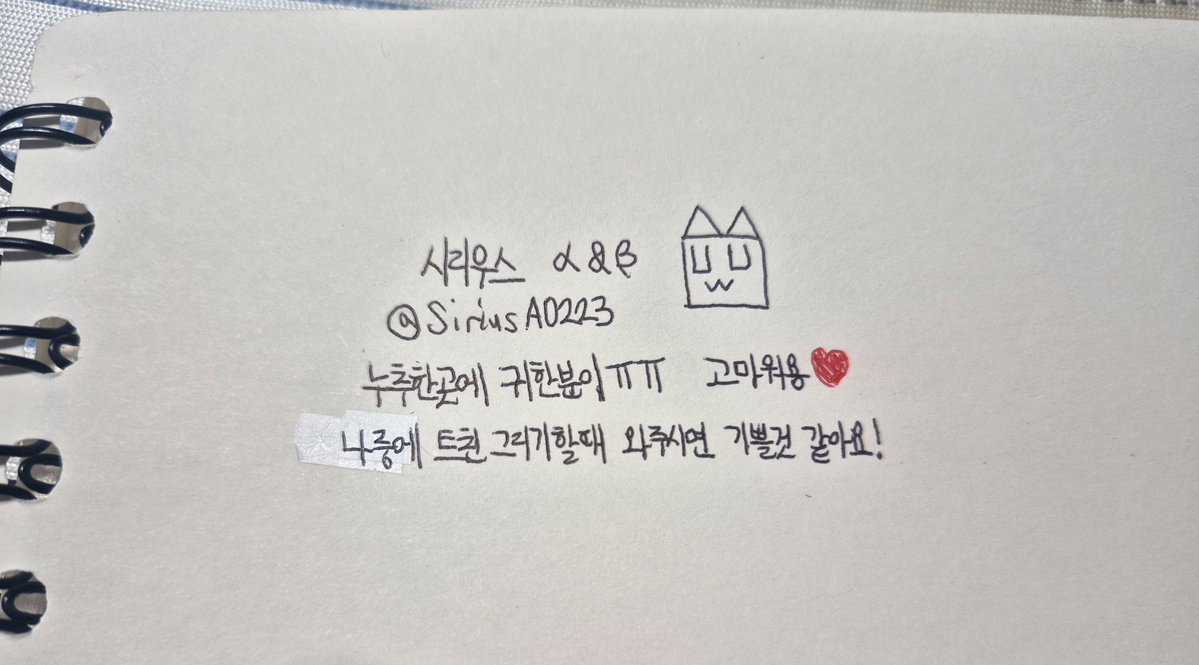 시리우스 α&β
@SiriusA0223
누추한곳에 귀한분이ㅠㅠ 고마워용
나중에 트친 그리기할때 와주시면 기쁠것 같아요!